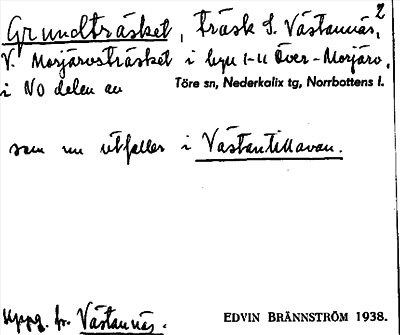 Grundträsket, träsk S. Västannäs, 2
V. Morjärvsträsket i byn 1-11 Över-Morjärv,
i NO delen av Töre sn, Nederkalix tg, Norrbottens l.
som nu utfaller i Västantillavan.
Uppg. fr. Västannäs. EDVIN BRÄNNSTRÖM 1938.